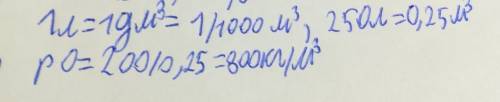 1л=1дм³= 1/1000 м³, 250л=0,25м³
рО=200/0,25=800кг/м³